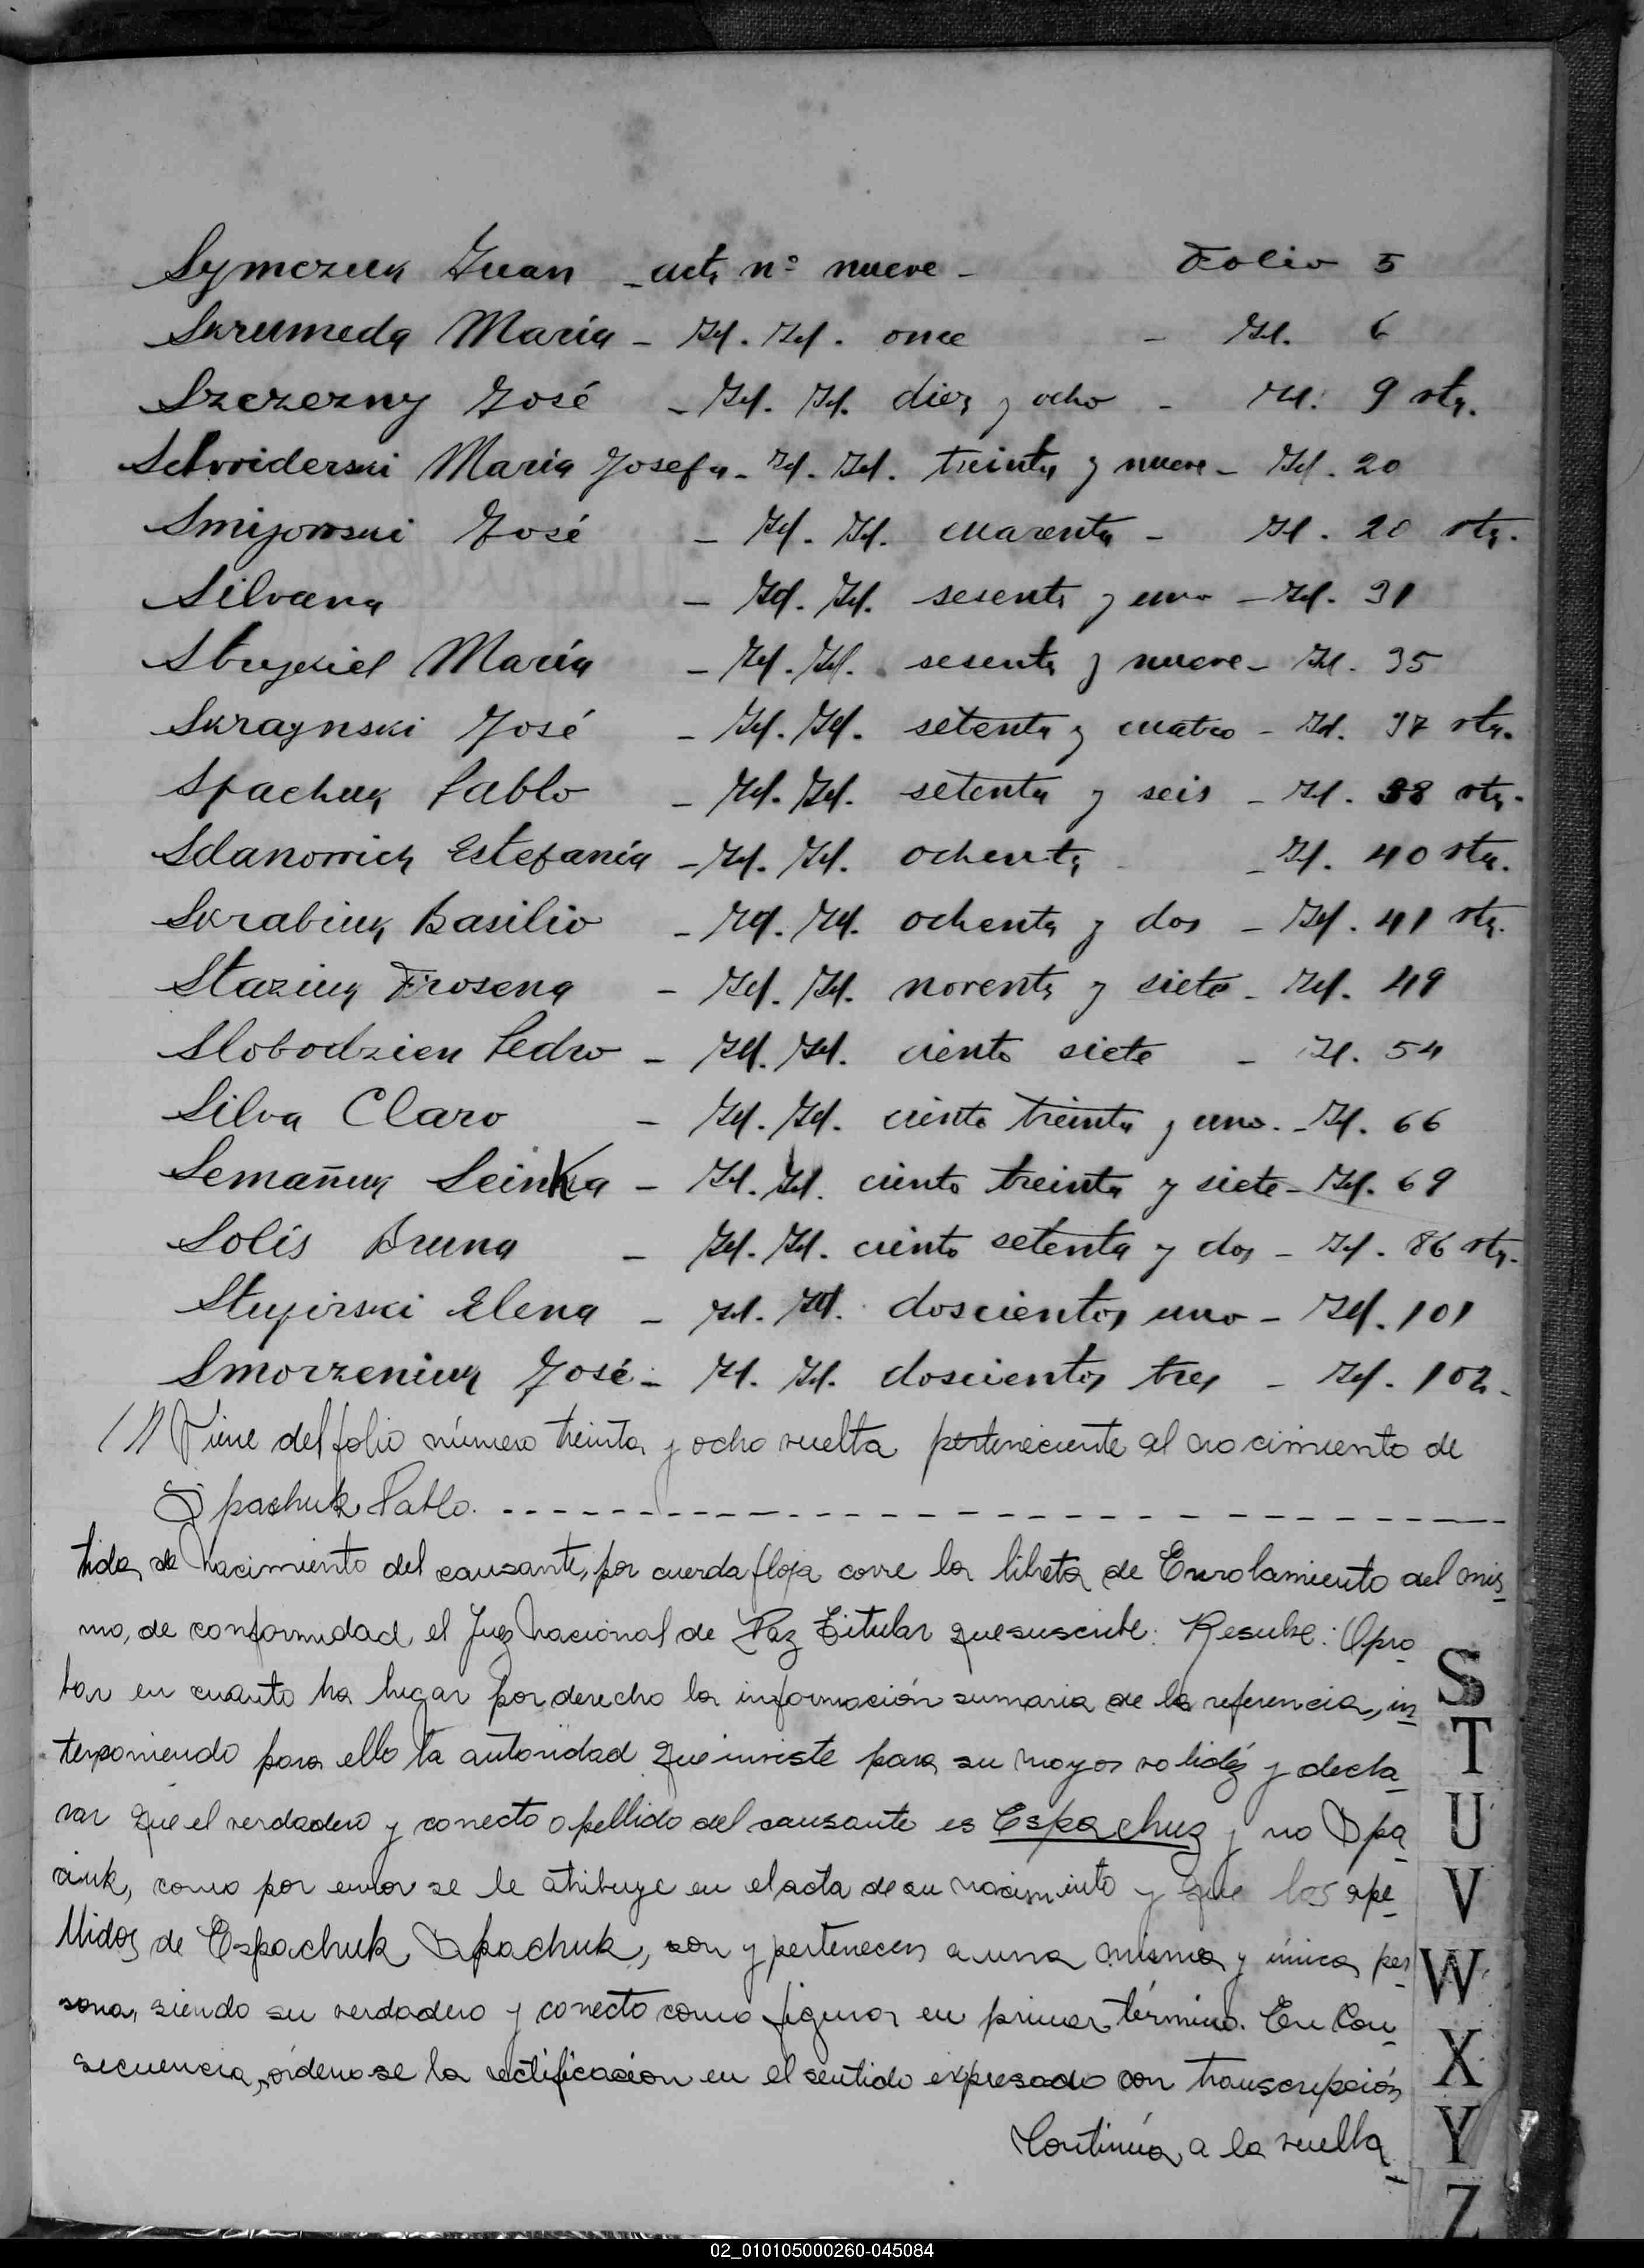 Symczuk Juan - acta nº nueve - Folio 5
Skrumeda María - Id. Id. once - Id. 6
Szczezny José - Id. Id. diez y ocho - Id. 9 vta.
María Josefa - Id. Id. treinta y nueve - Id. 20
Smijowski José - Id. Id. cuarenta - Id. 20 vta.
Silvana - Id. Id. sesenta y uno - Id. 31
María - Id. Id. sesenta y nueve - Id. 35
Skraynski José - Id. Id. setenta y cuatro - Id. 37 vta.
Spachuk Pablo - Id. Id. setenta y seis - Id. 38 vta.
Sdanowich Estefanía - Id. Id. ochenta - Id. 40 vta.
Skrabiuk Basilio - Id. Id. ochenta y dos - Id. 41 vta.
Staziuk Frosena - Id. Id. noventa y siete - Id. 49
Slobodzien Pedro - Id. Id. ciento siete - Id. 54
Silva Claro - Id. Id. ciento treinta y uno. - Id. 66
Semañuk Seinka - Id. Id. ciento treinta y siete - Id. 69
Solis Bruna - Id. Id. ciento setenta y dos - Id. 86 vta.
Stupirski Elena - Id. Id. doscientos uno - Id. 101
Smorzeniuk José - Id. Id. doscientos tres - Id. 102 -
(1) Viene del folio número treinta y ocho vuelta perteneciente al nacimiento de
Spachuk Pablo.
tida de nacimiento del causante, por cuerda floja corre la libreta de Enrolamiento del mis
mo, de conformidad el Juez Nacional de Paz Titular que suscribe: Resuelve: Apro
bar en cuanto ha lugar por derecho la información sumaria de la referencia, in
terponiendo para ello la autoridad que inviste para su mayor validéz y decla
rar que el verdadero y correcto apellido del causante es Espachuk y no Spa
ciuk, como por error se le atribuye en el acta de su nacimiento y que los ape
llidos de Espachuk, Spachuk, son y pertenecen a una misma y única per
sona, siendo su verdadero y correcto como figura en primer término. En Con
secuencia, ordenase la rectificación en el sentido expresado con transcripción
Continúa a la vuelta
S
T
U
V
W
X
Y
Z
02_010105000260-045084